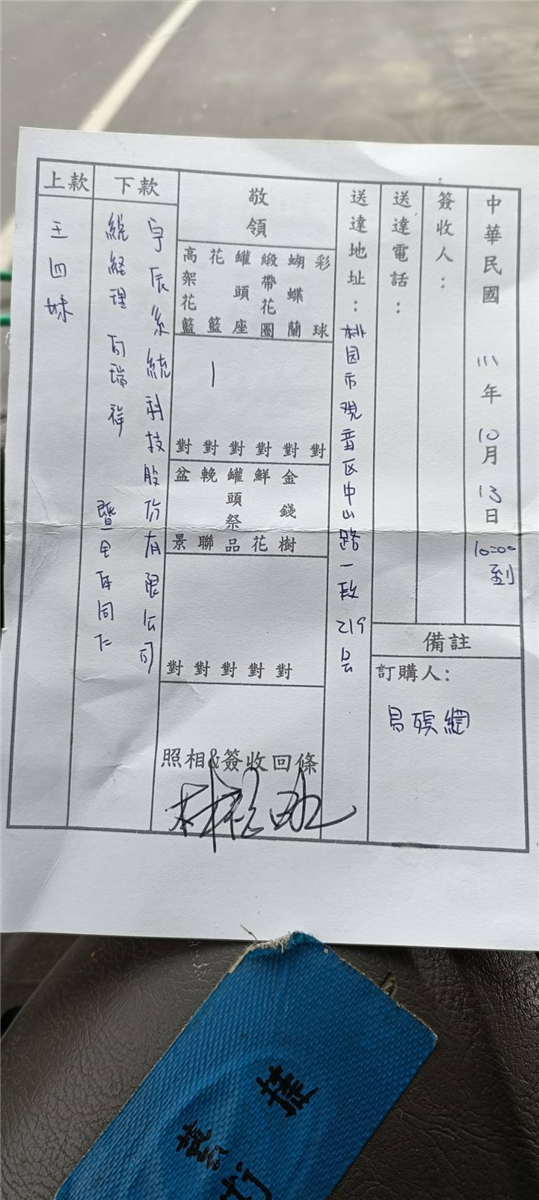 中華民國 111年 10月 13日 10:00到
簽收人：
送達電話：
送達地址：桃園市觀音區中山路一段219號
備註
訂購人：
易殯網
敬領
彩球 對
蝴蝶蘭 對
緞帶花圈 對
罐頭座 對
花籃 1 對
高架花籃 對
金錢樹 對
鮮花 對
罐頭祭品 對
輓聯 對
盆景 對
照相&簽收回條
下款
宇辰系統科技股份有限公司
總經理 瑞祥 暨全體同仁
上款
王四妹